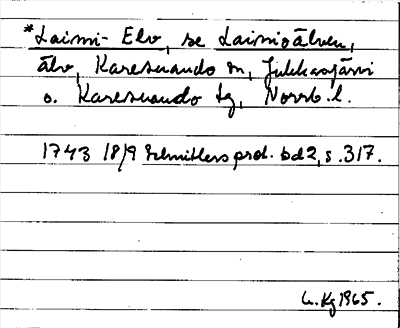 *Laimi-Elv, se Lainioälven,
älv, Karesuando sn, Jukkasjärvi
o. Karesuando tg, Norrb. l.
1743 18/9 Schnitlers prot. bd 2, s. 317.
G. Kg 1965.